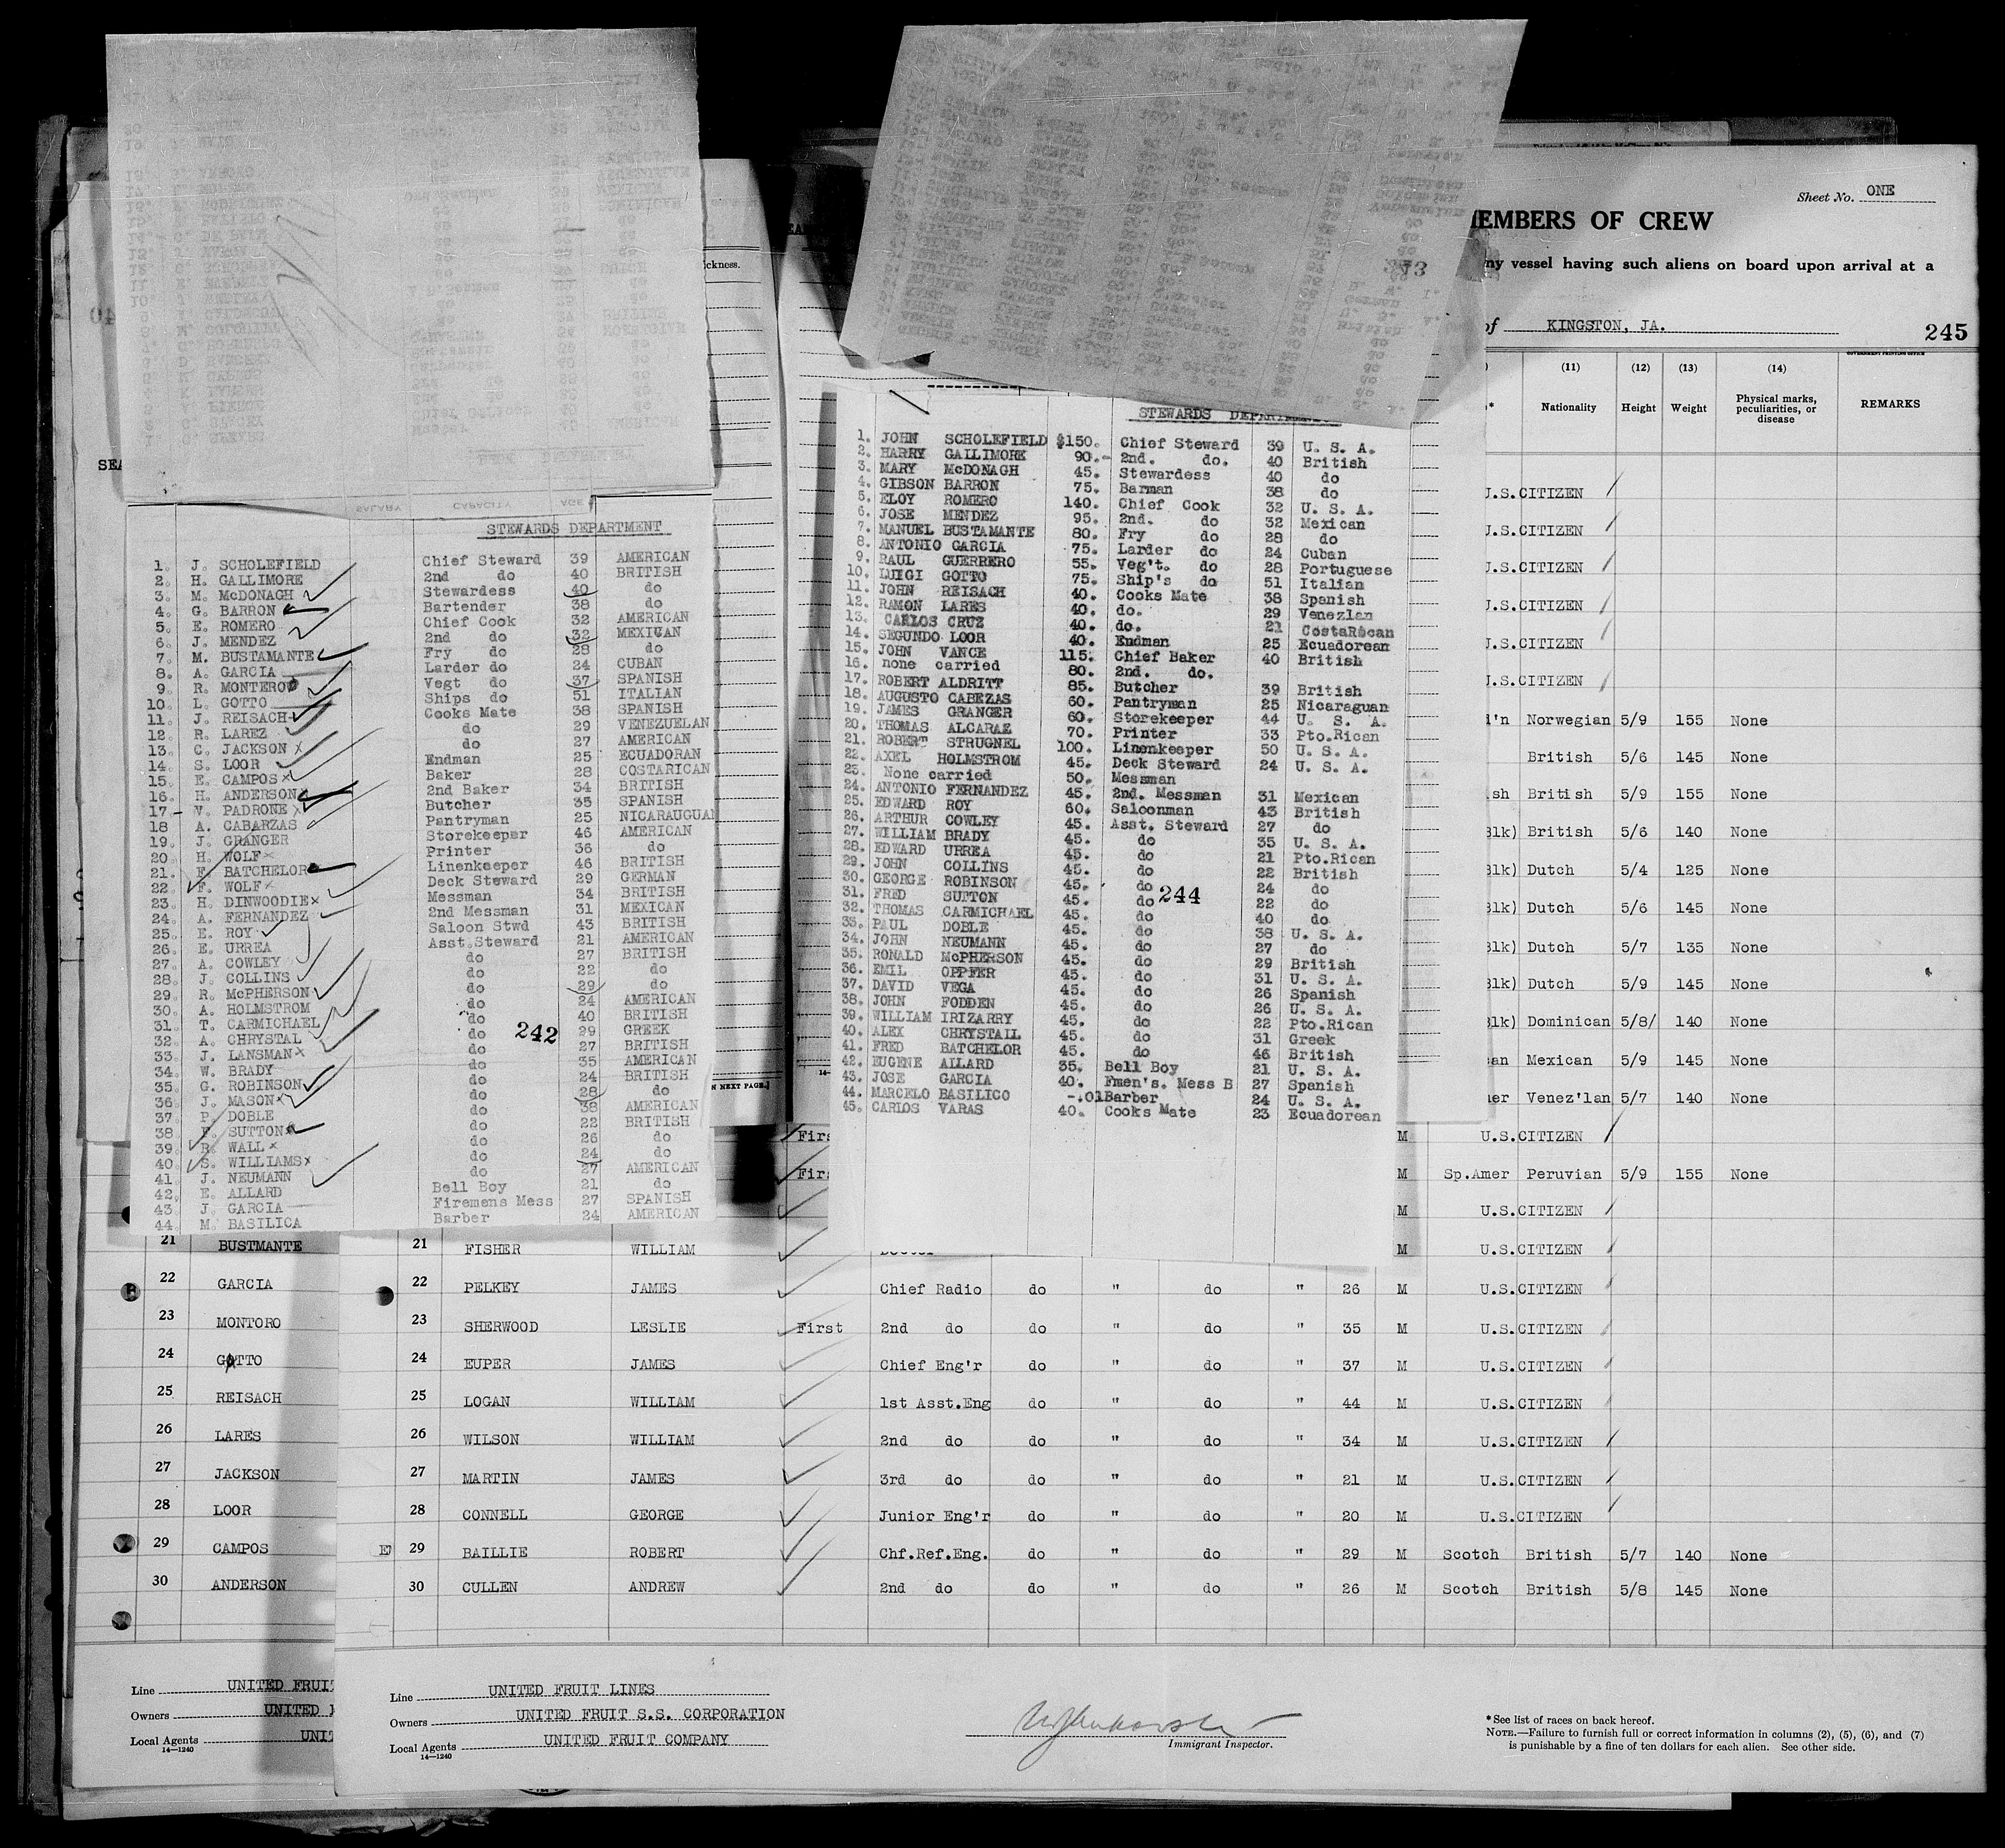 Sheet No. ONE
MEMBERS OF CREW
ny vessel having such aliens on board upon arrival at a
of KINGSTON, JA.
245
ckness.
SEA
SALARY CAPACITY AGE
STEWARDS DEPARTMENT
1. J. SCHOLEFIELD Chief Steward 39 AMERICAN
2. H. GALLIMORE 2nd do 40 BRITISH
3. M. McDONAGH Stewardess 40 do
4. G. BARRON Bartender 38 do
5. E. ROMERO Chief Cook 32 AMERICAN
6. J. MENDEZ 2nd do 32 MEXICAN
7. M. BUSTAMANTE Fry do 28 do
8. A. GARCIA Larder do 24 CUBAN
9. R. MONTERO Vegt do 37 SPANISH
10. L. GOTTO Ships do 51 ITALIAN
11. J. REISACH Cooks Mate 38 SPANISH
12. R. LAREZ do 29 VENEZUELAN
13. C. JACKSON x do 27 AMERICAN
14. S. LOOR Endman 25 ECUADORAN
15. E. CAMPOS x Baker 28 COSTARICAN
16. H. ANDERSON 2nd Baker 34 BRITISH
17 V. PADRONE x Butcher 35 SPANISH
18 A. CABARZAS Pantryman 25 NICARAUGUAN
19. J. GRANGER Storekeeper 46 AMERICAN
20. H. WOLF x Printer 36 do
21. F. BATCHELOR Linenkeeper 46 BRITISH
22. F. WOLF x Deck Steward 29 GERMAN
23. H. DINWOODIE x Messman 34 BRITISH
24. A. FERNANDEZ 2nd Messman 31 MEXICAN
25. E. ROY Saloon Stwd 43 BRITISH
26. E. URREA Asst.Steward 21 AMERICAN
27. A. COWLEY do 27 BRITISH
28. J. COLLINS do 22 do
29. R. McPHERSON do 29 do
30. A. HOLMSTROM do 24 AMERICAN
31. T. CARMICHAEL do 40 BRITISH
32. A. CHRYSTAL do 29 GREEK
33. J. LANSMAN x do 27 BRITISH
34. W. BRADY do 35 AMERICAN
35. G. ROBINSON do 24 BRITISH
36. J. MASON x do 28 do
37. P. DOBLE do 38 AMERICAN
38. F. SUTTON do 22 BRITISH
39. R. WALL x do 26 do
40. S. WILLIAMS x do 24 do
41. J. NEUMANN do 27 AMERICAN
42. E. ALLARD Bell Boy 21 do
43. J. GARCIA Firemens Mess 27 SPANISH
44. M. BASILICA Barber 24 AMERICAN
242
STEWARDS
1. JOHN SCHOLEFIELD $150. Chief Steward 39 U. S. A.
2. HARRY GALLIMORE 90.- 2nd. do. 40 British
3. MARY McDONAGH 45. Stewardess 40 do
4. GIBSON BARRON 75. Barman 38 do
5. ELOY ROMERO 140. Chief Cook 32 U. S. A.
6. JOSE MENDEZ 95. 2nd. do 32 Mexican
7. MANUEL BUSTAMANTE 80. Fry do 28 do
8. ANTONIO GARCIA 75. Larder do 24 Cuban
9. RAUL GUERRERO 55. Veg't. do 28 Portuguese
10. LUIGI GOTTO 75. Ship's do 51 Italian
11. JOHN REISACH 40. Cooks Mate 38 Spanish
12. RAMON LARES 40. do. 29 Venezlan
13. CARLOS CRUZ 40. do. 21 CostaRican
14. SEGUNDO LOOR 40. Endman 25 Ecuadorean
15. JOHN VANCE 115. Chief Baker 40 British
16. none carried 80. 2nd. do.
17. ROBERT ALDRITT 85. Butcher 39 British
18. AUGUSTO CABEZAS 60. Pantryman 25 Nicaraguan
19. JAMES GRANGER 60. Storekeeper 44 U. S. A.
20. THOMAS ALCARAZ 70. Printer 33 Pto.Rican
21. ROBERT STRUGNEL 100. Linenkeeper 50 U. S. A.
22. AXEL HOLMSTROM 45. Deck Steward 24 U. S. A.
23. None carried 50. Messman
24. ANTONIO FERNANDEZ 45. 2nd. Messman 31 Mexican
25. EDWARD ROY 60. Saloonman 43 British
26. ARTHUR COWLEY 45. Asst. Steward 27 do
27. WILLIAM BRADY 45. do 35 U. S. A.
28. EDWARD URREA 45. do 21 Pto.Rican
29. JOHN COLLINS 45. do 22 British
30. GEORGE ROBINSON 45. do 24 do
31. FRED SUTTON 45. do 22 do
32. THOMAS CARMICHAEL 45. do 40 do
33. PAUL DOBLE 45. do 38 U. S. A.
34. JOHN NEUMANN 45. do 27 do
35. RONALD McPHERSON 45. do 29 British
36. EMIL OPPFER 45. do 31 U. S. A.
37. DAVID VEGA 45. do 26 Spanish
38. JOHN FODDEN 45. do 26 U. S. A.
39. WILLIAM IRIZARRY 45. do 22 Pto.Rican
40. ALEX CHRYSTAIL 45. do 31 Greek
41. FRED BATCHELOR 45. do 46 British
42. EUGENE ALLARD 35. Bell Boy 21 U. S. A.
43. JOSE GARCIA 40. Fmen's. Mess B 27 Spanish
44. MARCELO BASILICO -.01 Barber 24 U. S. A.
45. CARLOS VARAS 40. Cooks Mate 23 Ecuadorean
244
(11) (12) (13) (14)
Nationality Height Weight Physical marks, peculiarities, or disease REMARKS
GOVERNMENT PRINTING OFFICE
U.S.CITIZEN
U.S.CITIZEN
U.S.CITIZEN
U.S.CITIZEN
U.S.CITIZEN
U.S.CITIZEN
d'n Norwegian 5/9 155 None
British 5/6 145 None
sh British 5/9 155 None
Blk) British 5/6 140 None
Blk) Dutch 5/4 125 None
Blk) Dutch 5/6 145 None
Blk) Dutch 5/7 135 None
Blk) Dutch 5/9 145 None
Blk) Dominican 5/8/ 140 None
an Mexican 5/9 145 None
mer Venez'lan 5/7 140 None
N NEXT PAGE.]
Firs M U.S.CITIZEN
Firs M Sp.Amer Peruvian 5/9 155 None
M U.S.CITIZEN
21 BUSTMANTE
22 GARCIA
23 MONTORO
24 GOTTO
25 REISACH
26 LARES
27 JACKSON
28 LOOR
29 CAMPOS
30 ANDERSON
21 FISHER WILLIAM M U.S.CITIZEN
22 PELKEY JAMES Chief Radio do " do " 26 M U.S.CITIZEN
23 SHERWOOD LESLIE First 2nd do do " do " 35 M U.S.CITIZEN
24 EUPER JAMES Chief Eng'r do " do " 37 M U.S.CITIZEN
25 LOGAN WILLIAM 1st Asst.Eng do " do " 44 M U.S.CITIZEN
26 WILSON WILLIAM 2nd do do " do " 34 M U.S.CITIZEN
27 MARTIN JAMES 3rd do do " do " 21 M U.S.CITIZEN
28 CONNELL GEORGE Junior Eng'r do " do " 20 M U.S.CITIZEN
29 BAILLIE ROBERT Chf.Ref.Eng. do " do " 29 M Scotch British 5/7 140 None
30 CULLEN ANDREW 2nd do do " do " 26 M Scotch British 5/8 145 None
Line UNITED FRUIT
Owners UNITED
Local Agents UNIT
14—1240
Line UNITED FRUIT LINES
Owners UNITED FRUIT S.S. CORPORATION
Local Agents UNITED FRUIT COMPANY
14—1240
Immigrant Inspector.
*See list of races on back hereof.
NOTE.—Failure to furnish full or correct information in columns (2), (5), (6), and (7)
is punishable by a fine of ten dollars for each alien. See other side.